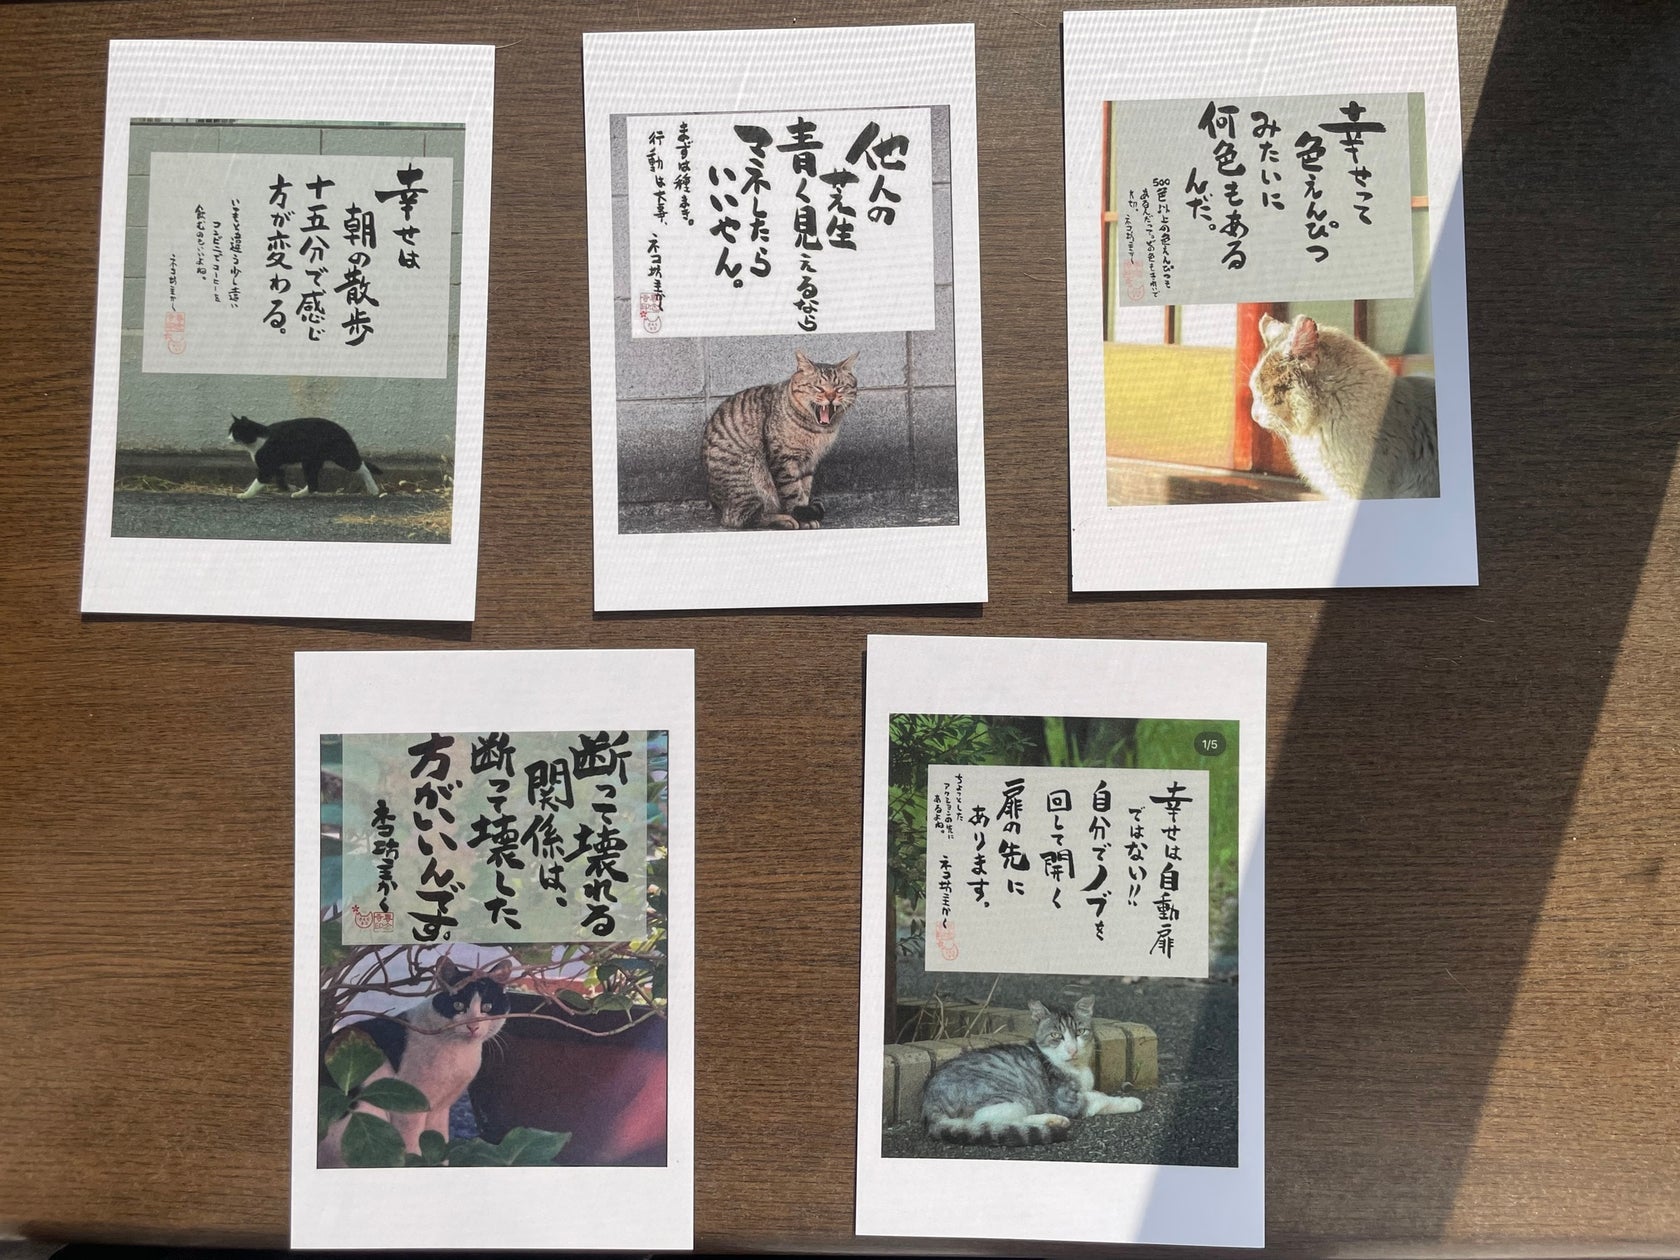 幸せは
朝の散歩
十五分で感じ
方が変わる。
いつもと違う少し遠い
コンビニでコーヒーを
飲むのもいいよね。
ネコ坊主かく
他人の
芝生
青く見えるなら
マネしたら
いいやん。
まずは種まき。
行動は大事、ネコ坊主かく
幸せって
色えんぴつ
みたいに
何色もある
んだ。
500色以上の色えんぴつも
あるんだってどの色もきれいで
大切。ネコ坊主かく
断って壊れる
関係は、
断って壊した
方がいいんです。
ネコ坊主かく
1/5
幸せは自動扉
ではない!!
自分でノブを
回して開く
扉の先に
あります。
ちょっとした
アクションの先に
あるよね。
ネコ坊主かく